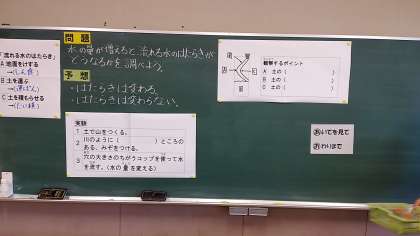 「流れる水のはたらき」
A 地面をけする
→(しん食)
B 土を運ぶ
→(運ぱん)
C 土を積もらせる
→(たい積)
問題
水の量が増えると、流れる水のはたらきが
どうなるかを調べよう。
予想
・はたらきは変わる。
・はたらきは変わらない。
実験
1 土で山をつくる。
2 川のように( )ところの
ある、みぞをつける。
3 穴の大きさのちがうコップを使って水
を流す。(水の量を変える)
観察するポイント
A 土の( )
B 土の( )
C 土の( )
いてを見て
わりまで